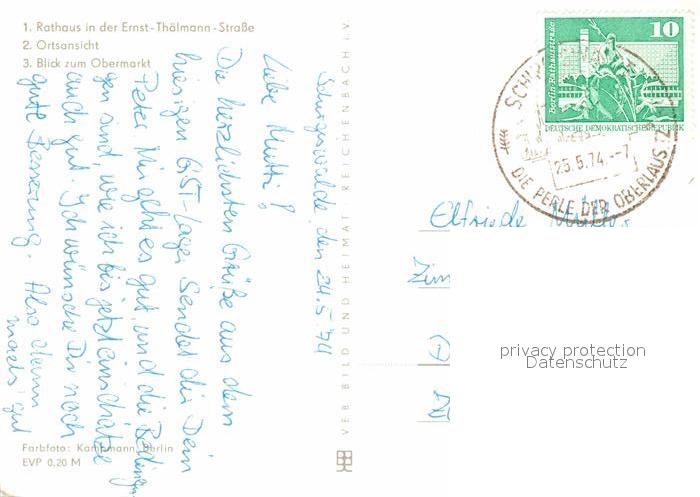 1. Rathaus in der Ernst-Thälmann-Straße
2. Ortsansicht
3. Blick zum Obermarkt
Schirgiswalde, den 24.5.74
Liebe Mutti!
Die herzlichsten Grüße aus dem
hiesigen GST-Lager sendet dir Dein
Peter. Mir geht es gut und die Bedingun
gen sind, wie ich bis jetzt einschätze
auch gut. Ich wünsche Dir noch
gute Besserung. Also dann
machs gut
Farbfoto: Kampmann, Berlin
EVP 0,20 M
VEB BILD UND HEIMAT REICHENBACH i.V.
10
Berlin, Rathausstraße
DEUTSCHE DEMOKRATISCHE REPUBLIK
25.5.74.--7
DIE PERLE DER OBERLAUSITZ
Elfriede
Zim
privacy protection
Datenschutz